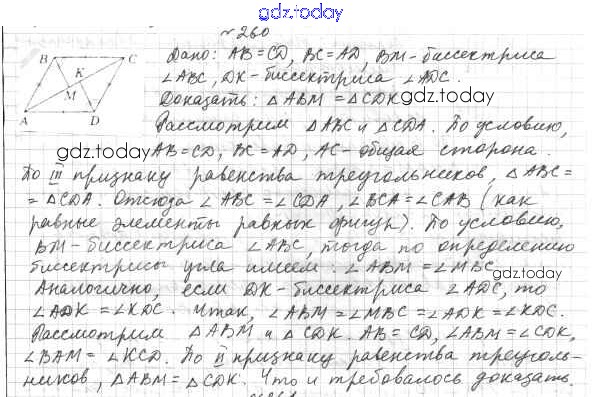 gdz.today
№260
Дано: AB=CD, BC=AD, BM-биссектриса
∠ABC, DK-биссектриса ∠ADC.
Доказать: △ABM=△CDK
gdz.today
B C
K
M
A D
Рассмотрим △ABC и △CDA. По условию,
gdz.today
AB=CD, BC=AD, AC-общая сторона.
По III признаку равенства треугольников, △ABC=
=△CDA. Отсюда ∠ABC=∠CDA, ∠BCA=∠CAB (как
равные элементы равных фигур). По условию,
BM-биссектриса ∠ABC, тогда по определению
биссектрисы угла имеем: ∠ABM=∠MBC.
gdz.today
Аналогично, если DK-биссектриса ∠ADC, то
∠ADK=∠KDC. Итак, ∠ABM=∠MBC=∠ADK=∠KDC.
Рассмотрим △ABM и △CDK. AB=CD, ∠ABM=∠CDK,
∠BAM=∠KCD. По II признаку равенства треуголь-
ников, △ABM=△CDK. Что и требовалось доказать.
gdz.today